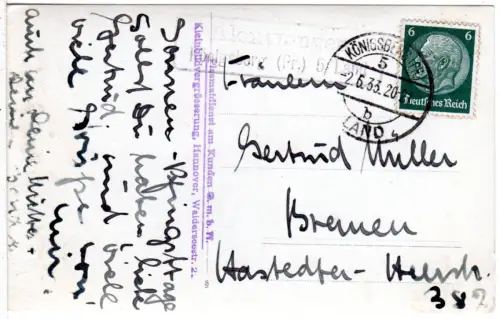 Sonnen-Pfingsttage
sollst Du haben liebe
Gertrud, und viele
viele Grüße von
auch an Deine Mutter +
Reklamedienst am Kunden G. m. b. H.
Kleinbildvergrösserung, Hannover, Walderseestr. 2.
Königsberg (Pr.) 5
KÖNIGSBERG (PR)
5
2.6.33.20
b
LAND
6 6
Deutsches Reich
Fräulein
Gertrud Müller
Bremen
Hastedter-Heerstr.
382